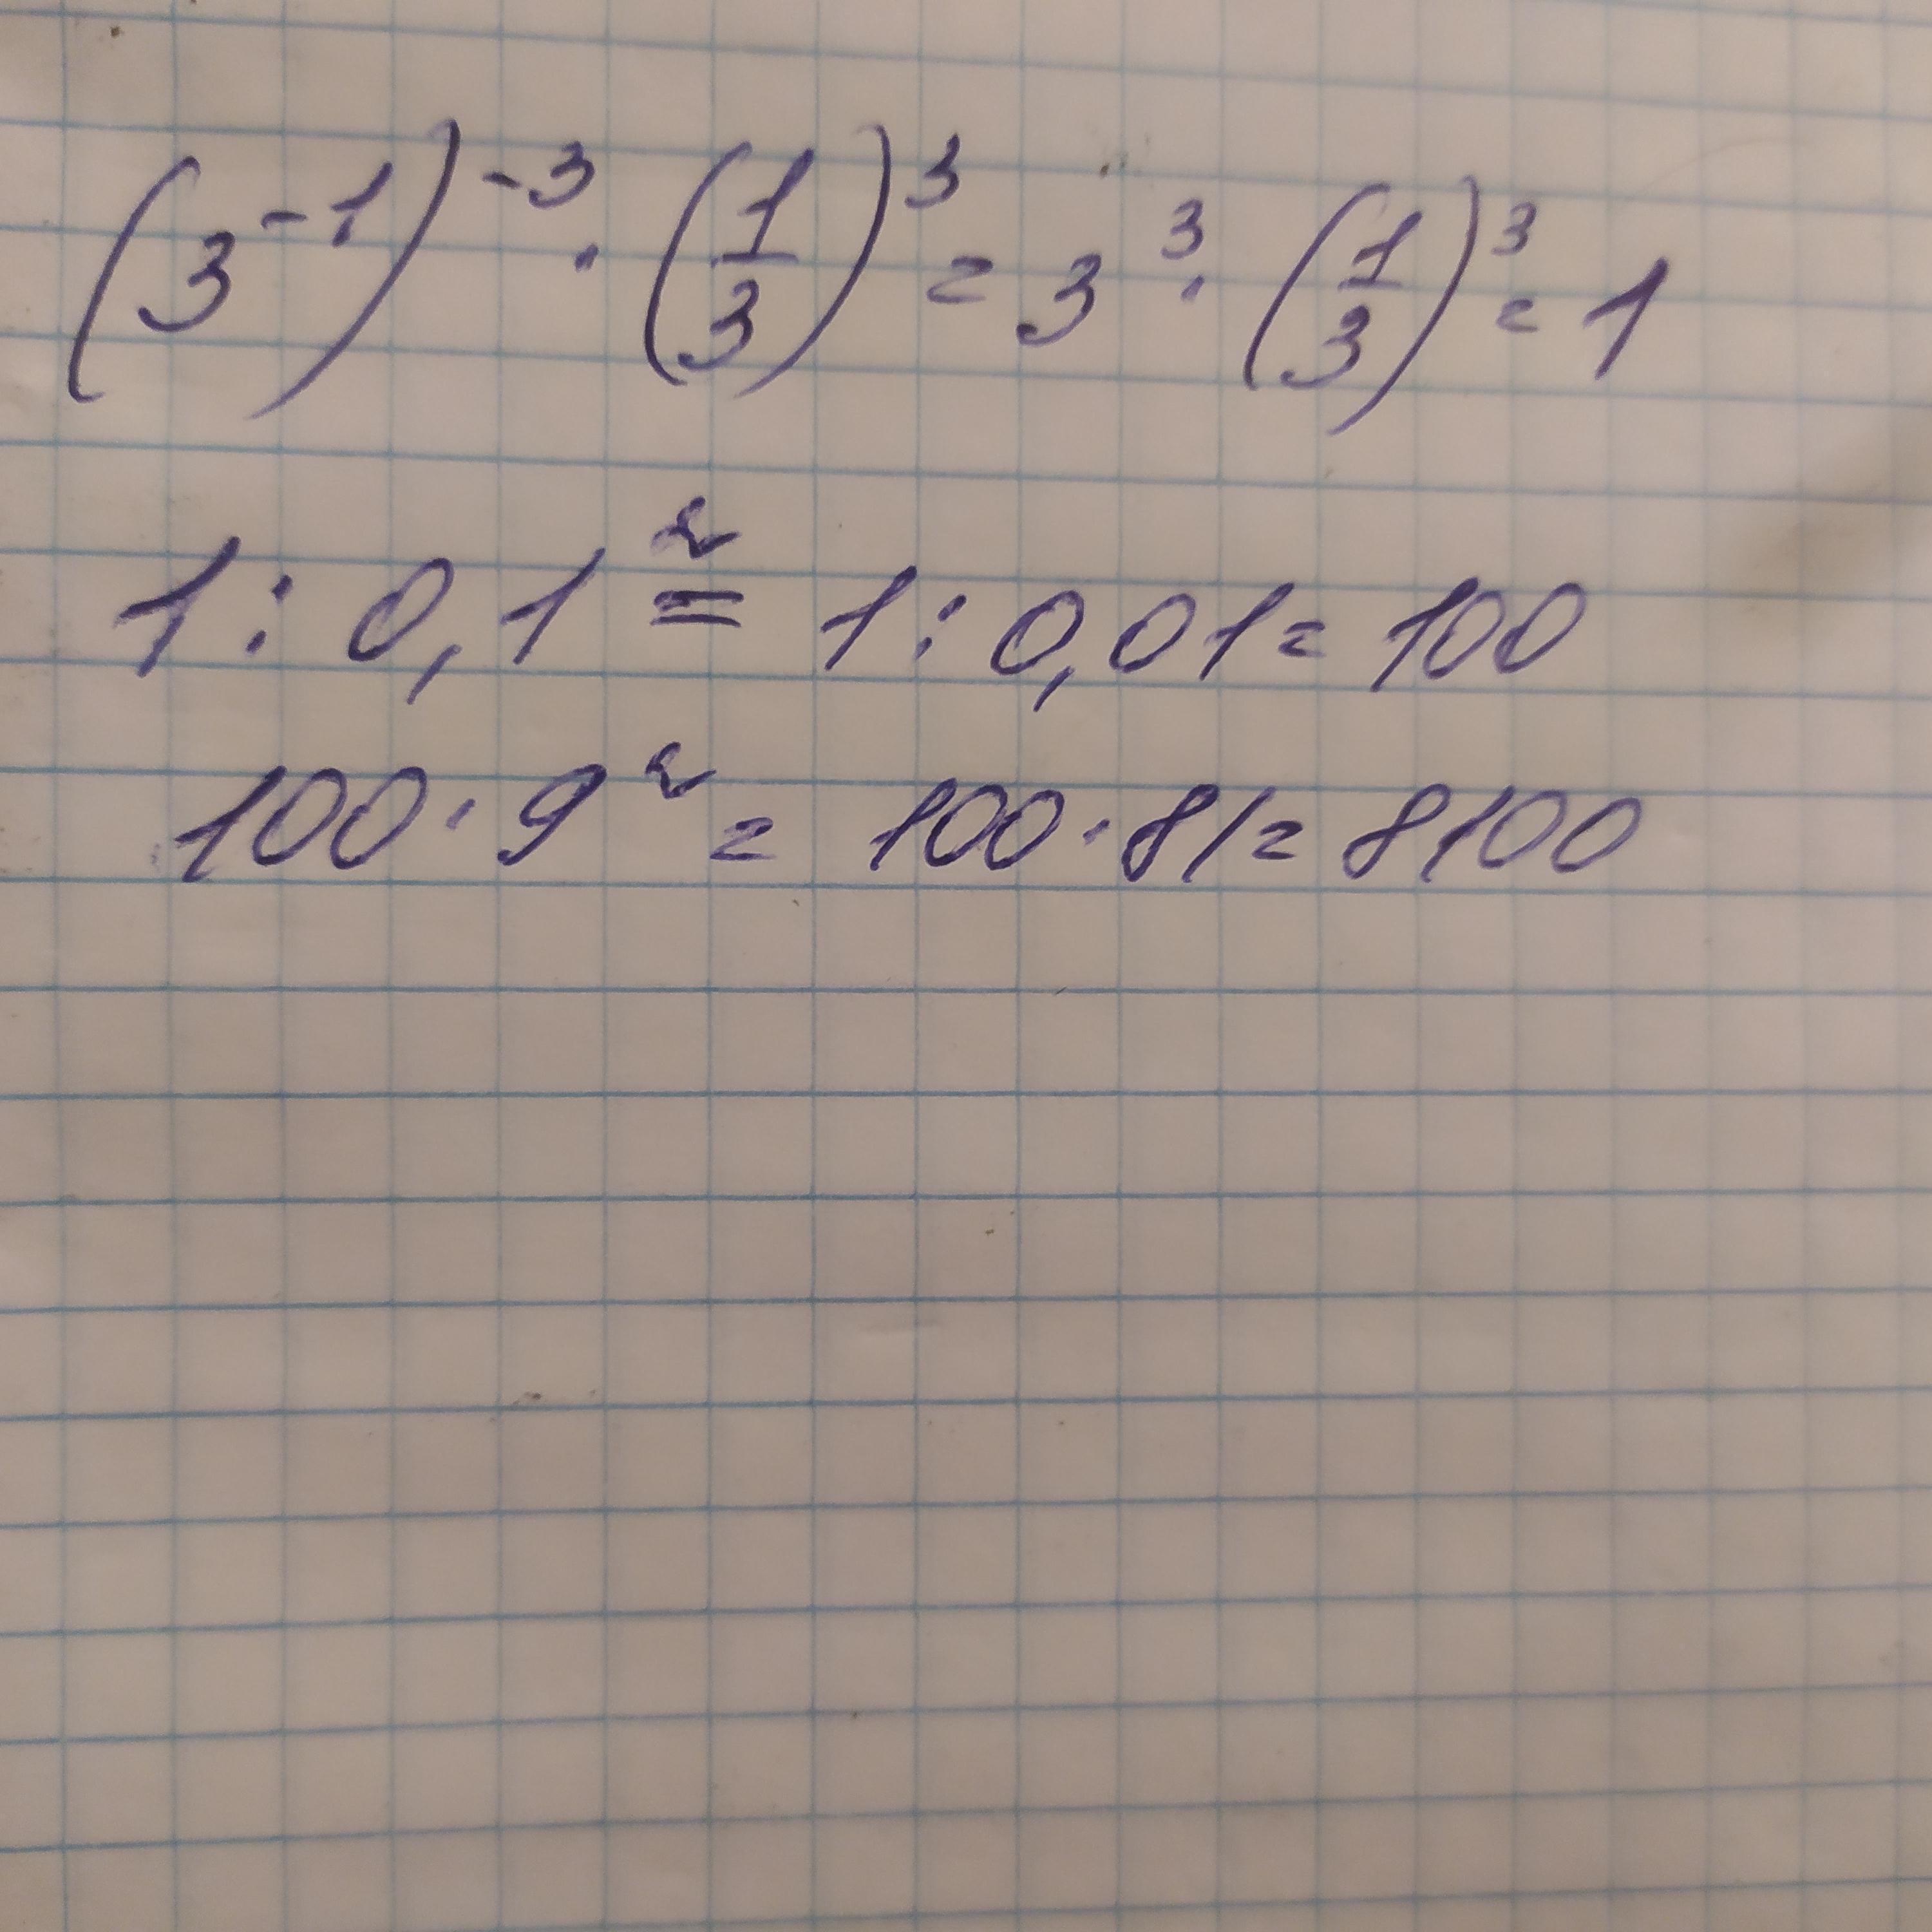 (3⁻¹)⁻³ · (1/3)³ = 3³ · (1/3)³ = 1
1 : 0,1² = 1 : 0,01 = 100
100 · 9² = 100 · 81 = 8100